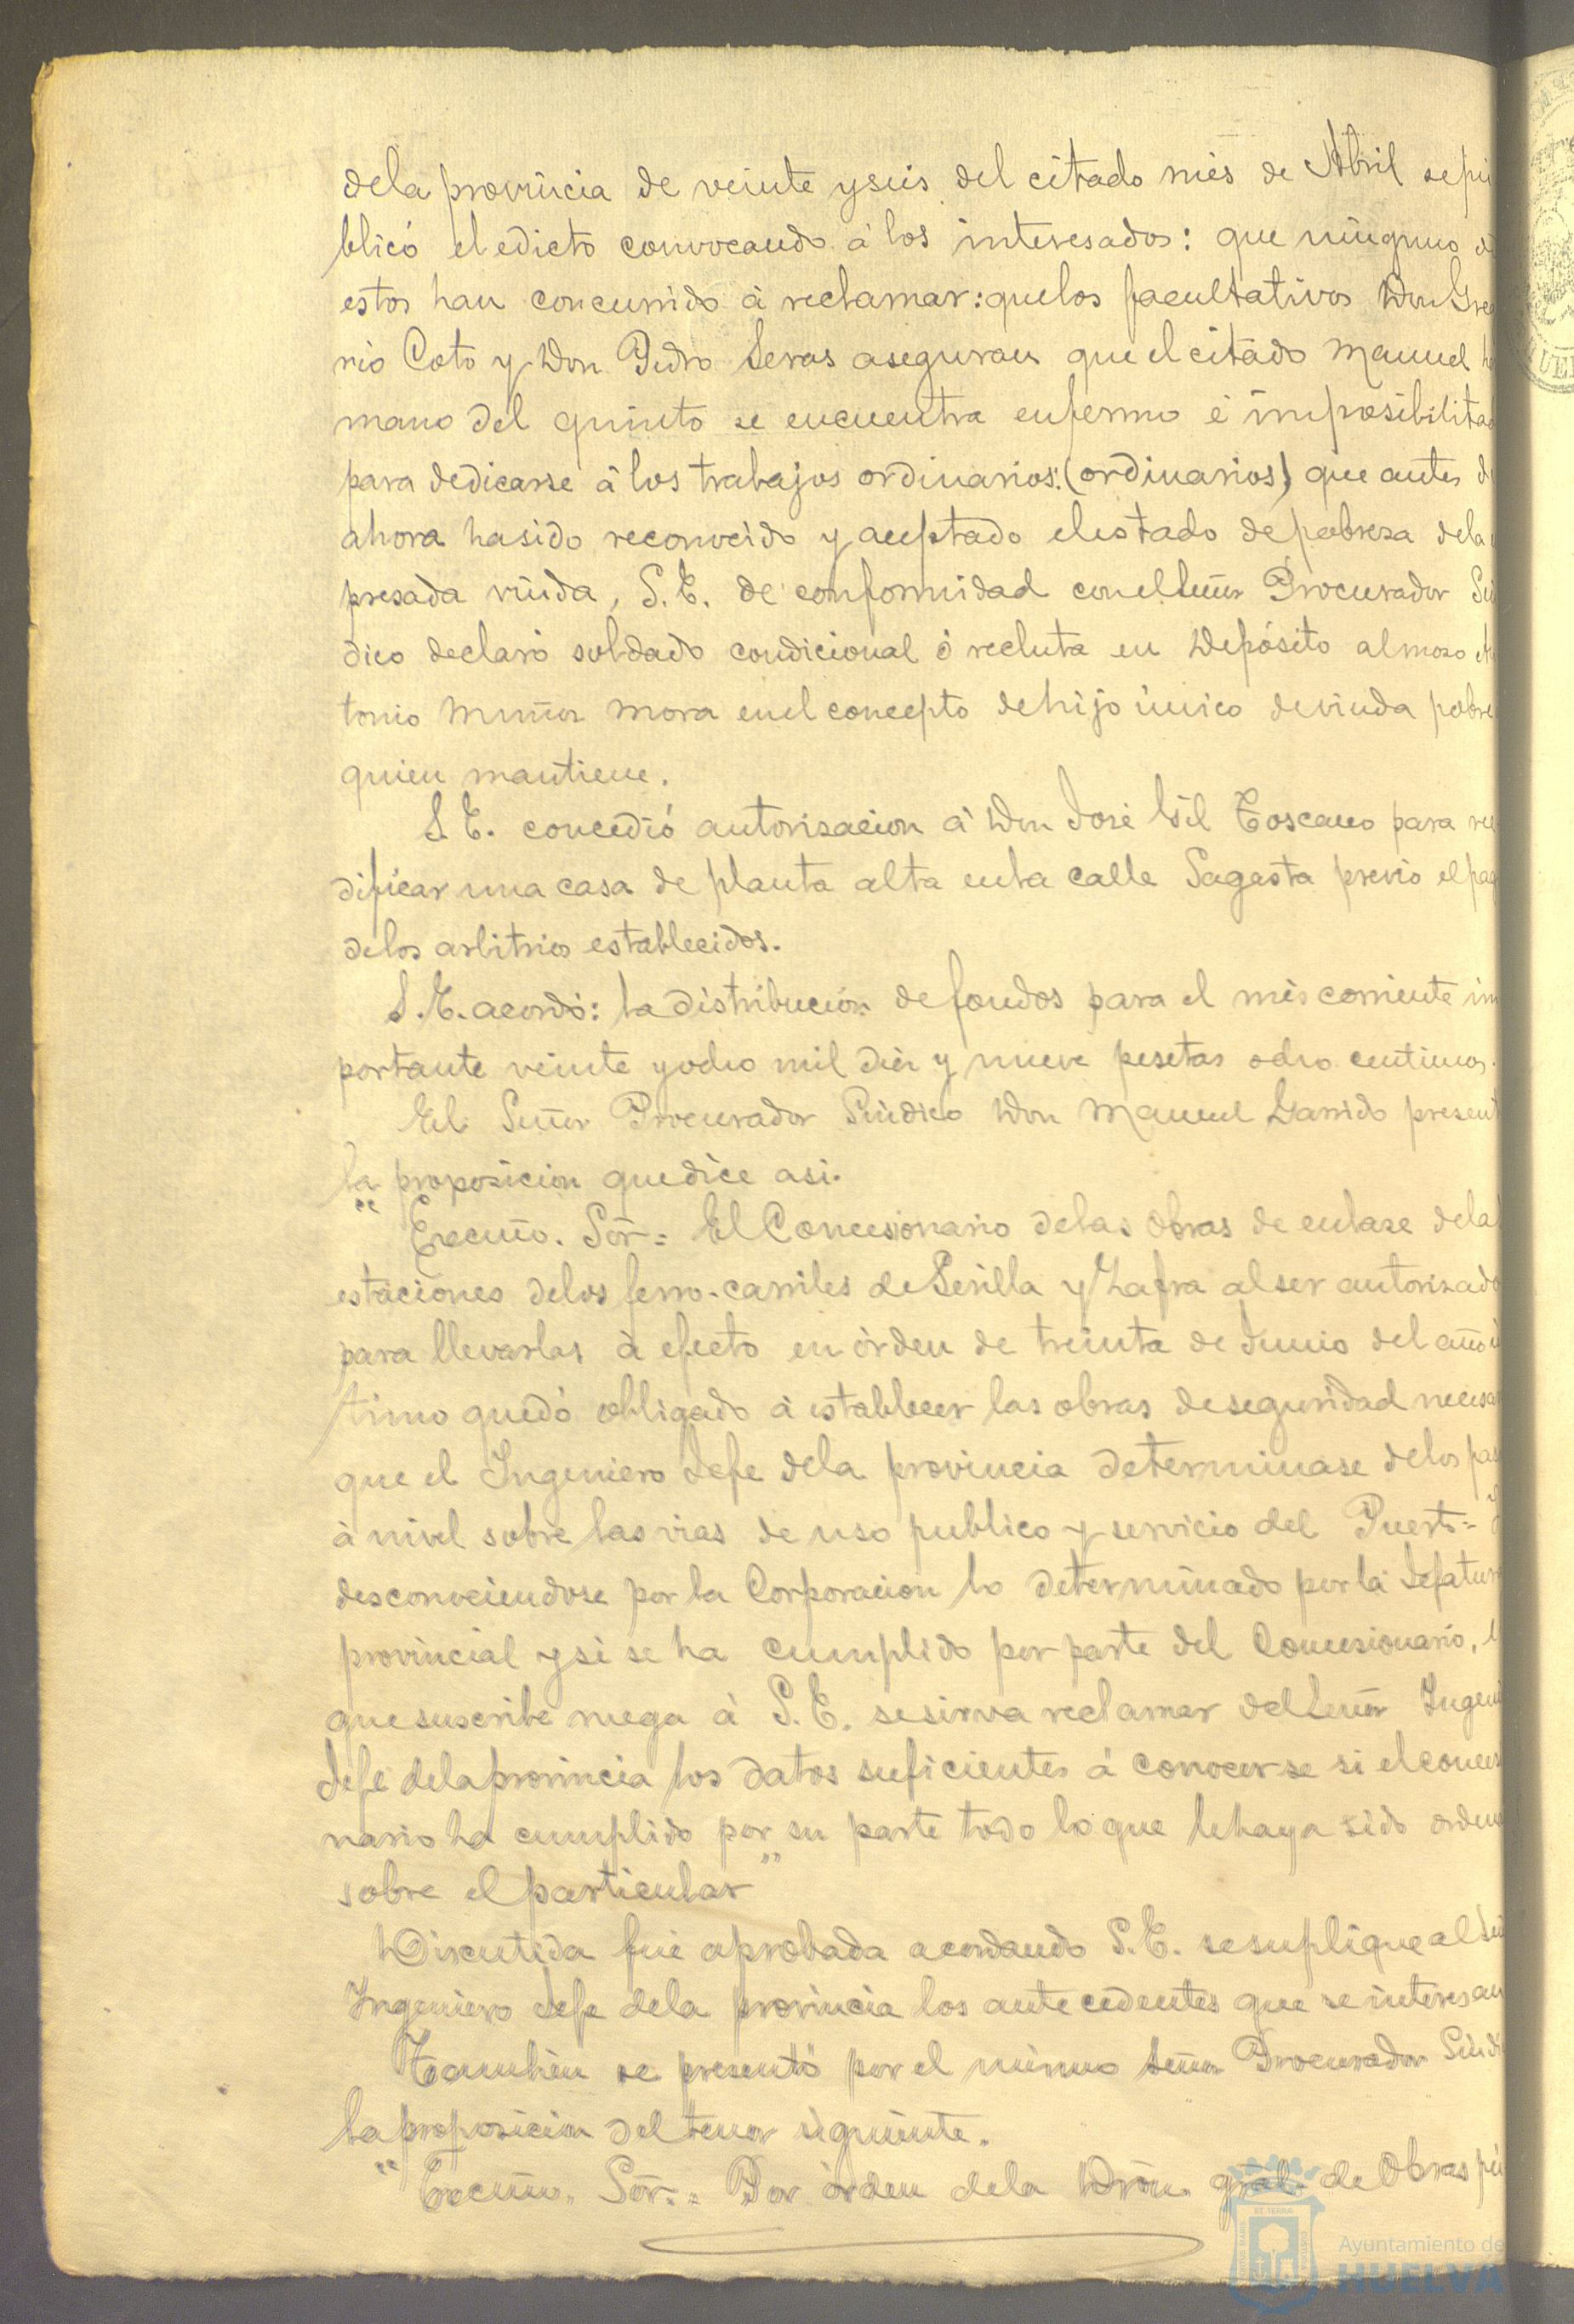 dela provincia de veinte y seis del citado mes de Abril se pú
blicó el edicto convocando á los interesados: que ninguno d
estos han concurrido á reclamar: que los facultativos Don Greg
rio Coto y Don Pedro Seras aseguran que el citado Manuel h
mano del quinto se encuentra enfermo é imposibilitad
para dedicarse á los trabajos ordinarios: (ordinarios) que antes d
ahora ha sido reconocido y aceptado el estado de pobreza dela
presada viuda, S. E. de conformidad con el Señor Procurador Sín
dico declaró soldado condicional ó recluta en Depósito al mozo An
tonio Muñoz Mora en el concepto de hijo único de viuda pobre
quien mantiene.
S. E. concedió autorizacion á Don José Gil Toscano para ree
dificar una casa de planta alta en la calle Sagasta previo el pag
delos arbitrios establecidos.
S. E. acordó: la distribución de fondos para el mes corriente im
portante veinte y ocho mil diez y nueve pesetas ocho centimos.
El Señor Procurador Síndico Don Manuel Garrido present
la proposicion que dice asi.
"Excmo. Sõr = El Concesionario delas obras de enlace dela
estaciones delos ferro-carriles de Sevilla y Zafra al ser autorizado
para llevarlas á efecto en órden de treinta de Junio del año úl
timo quedó obligado á establecer las obras de seguridad necesa
que el Ingeniero Jefe dela provincia determinase delos pas
á nivel sobre las vias de uso publico y servicio del Puerto = Y
desconociendose por la Corporacion lo determinado por la Jefatur
provincial y si se ha cumplido por parte del Concesionario, l
que suscribe ruega á S. E. se sirva reclamar del Señor Ingeni
Jefe dela provincia los datos suficientes á conocerse si el conces
nario ha cumplido por su parte todo lo que le haya sido orden
sobre el particular"
Discutida fué aprobada acordando S. E. se suplique al Señ
Ingeniero Jefe dela provincia los antecedentes que se interesan
Tambien se presentó por el mismo Señor Procurador Síndi
la proposicion del tenor siguiente.
"Excmo. Sõr. = Por órden dela Dirõn. gral. de Obras pú
Ayuntamiento de
HUELVA